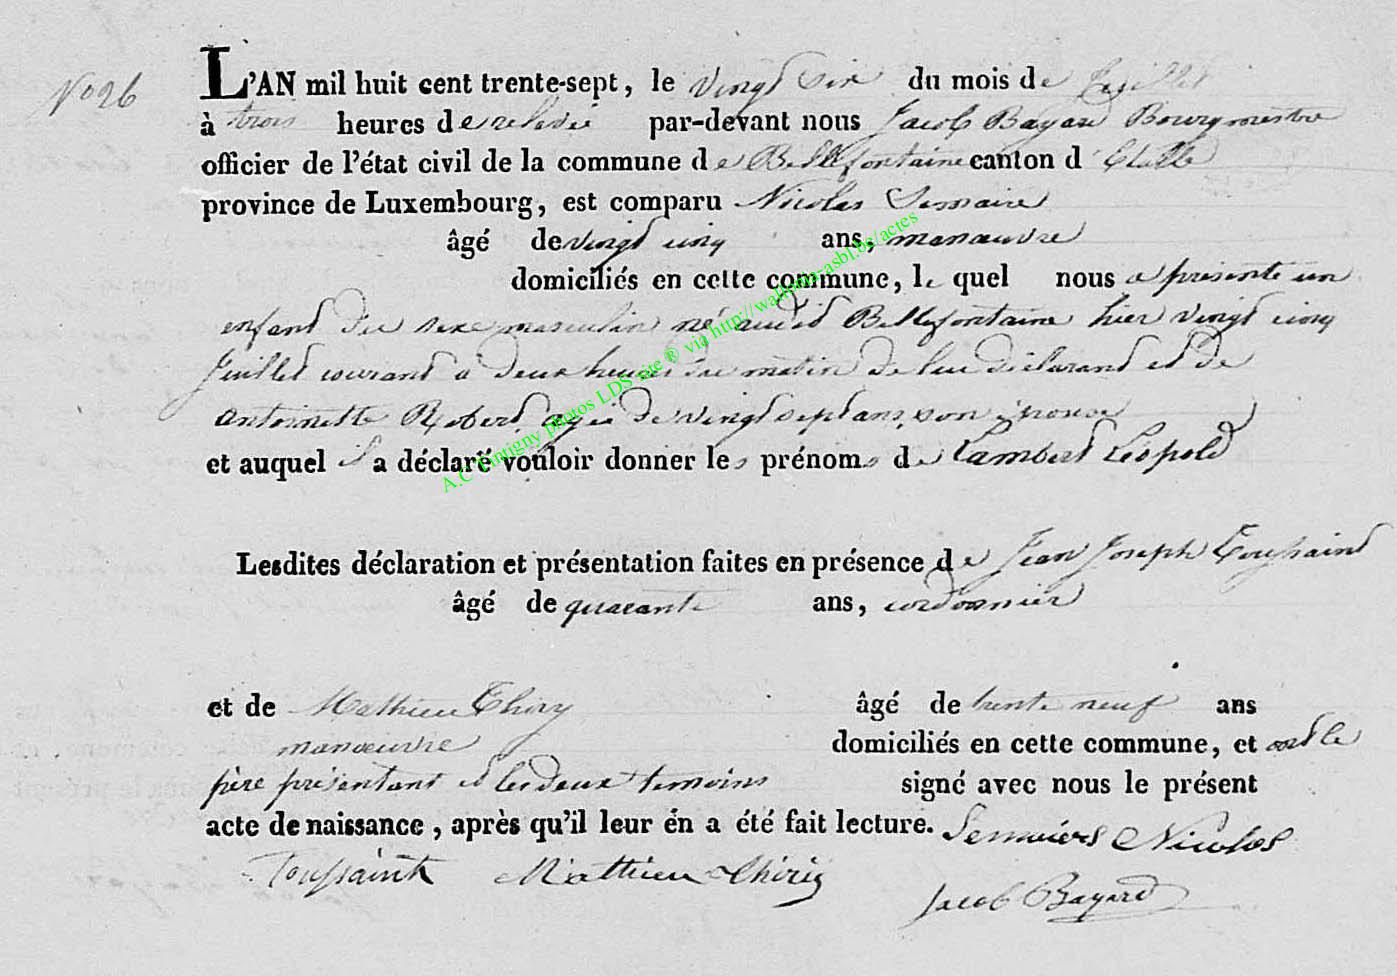 No 26
L'AN mil huit cent trente-sept, le vingt six du mois de Juillet
à trois heures de relevée par-devant nous Jacob Bayard Bourgmestre
officier de l'état civil de la commune de Bellefontaine canton d'Etalle
province de Luxembourg, est comparu Nicolas Semaire
âgé de vingt cinq ans, manœuvre
domiciliés en cette commune, le quel nous a présenté un
enfant du sexe masculin né audit Bellefontaine hier vingt cinq
Juillet courant à deux heures du matin de lui déclarant et de
Antoinette Robert, agée de vingt sept ans, son épouse
et auquel il a déclaré vouloir donner les prénoms de Lambert Léopold
Lesdites déclaration et présentation faites en présence de Jean Joseph Toussaint
âgé de quarante ans, cordonnier
et de Mathieu Thiry âgé de trente neuf ans
manœuvre domiciliés en cette commune, et ont le
père présentant et les deux temoins signé avec nous le présent
acte de naissance, après qu'il leur en a été fait lecture. Semuiers Nicolas
Toussaint Mathieu Thiriy
Jacob Bayard
A.C Tintigny photos LDS site ® via http://wallonia-asbl.be/actes